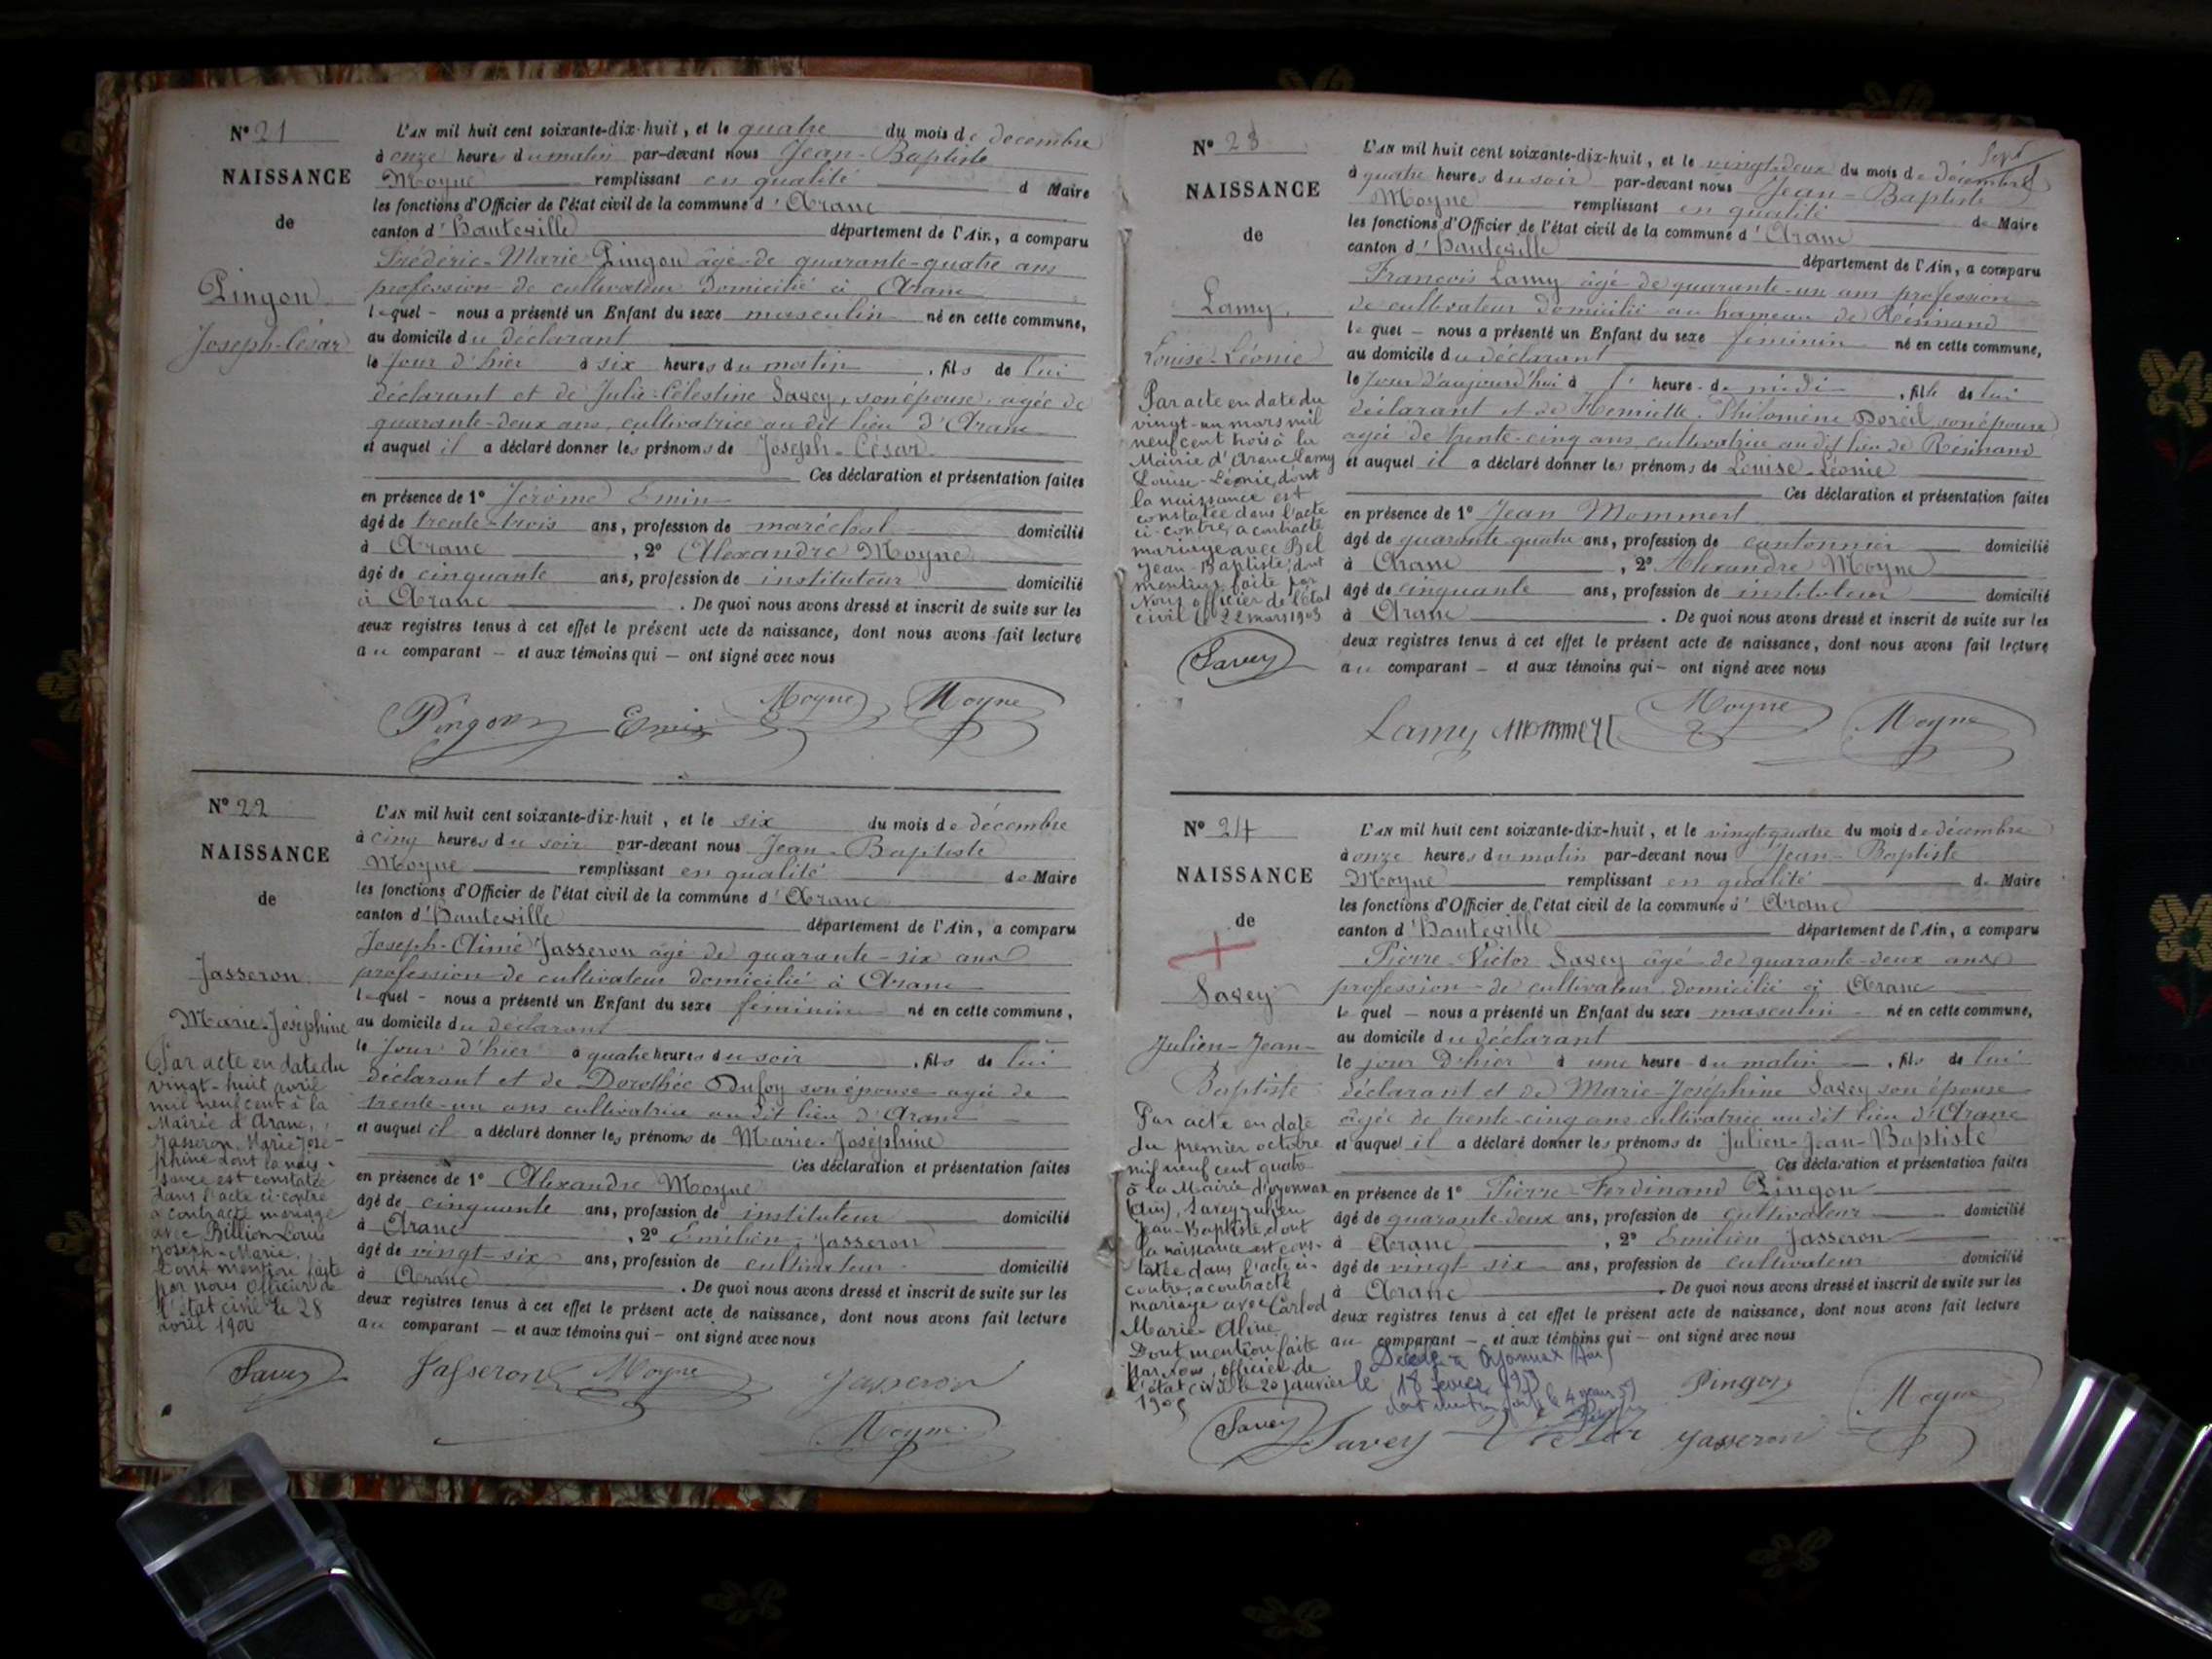 N° 21
NAISSANCE
de
Pingon
Joseph-César
L'AN mil huit cent soixante-dix-huit, et le quatre du mois de décembre
à onze heures du matin par-devant nous Jean-Baptiste
Moyne remplissant en qualité d Maire
les fonctions d'Officier de l'état civil de la commune d'Aranc
canton d'Hauteville département de l'Ain, a comparu
Frédéric-Marie Pingon âgé de quarante-quatre ans
profession de cultivateur domicilié à Aranc
lequel - nous a présenté un Enfant du sexe masculin né en cette commune,
au domicile du déclarant
le jour d'hier à six heures du matin, fils de lui
déclarant et de Julie-Célestine Savey, son épouse, agée de
quarante-deux ans, cultivatrice au dit lieu d'Aranc
et auquel il a déclaré donner les prénoms de Joseph-César
Ces déclaration et présentation faites
en présence de 1° Jérôme Emin
âgé de trente-trois ans, profession de maréchal domicilié
à Aranc, 2° Alexandre Moyne
âgé de cinquante ans, profession de instituteur domicilié
à Aranc. De quoi nous avons dressé et inscrit de suite sur les
deux registres tenus à cet effet le présent acte de naissance, dont nous avons fait lecture
au comparant - et aux témoins qui - ont signé avec nous
Pingon Emin Moyne Moyne
N° 22
NAISSANCE
de
Jasseron
Marie-Joséphine
Par acte en date du
vingt-huit avril
mil neuf cent à la
Mairie d'Aranc,
Jasseron, Marie José-
phine dont la nais-
sance est constatée
dans l'acte ci-contre
a contracté mariage
avec Billion Louis
Joseph-Marie.
Dont mention faite
par nous Officier de
l'état civil le 28
avril 1900
Savey
L'AN mil huit cent soixante-dix-huit, et le six du mois de décembre
à cinq heures du soir par-devant nous Jean-Baptiste
Moyne remplissant en qualité de Maire
les fonctions d'Officier de l'état civil de la commune d'Aranc
canton d'Hauteville département de l'Ain, a comparu
Joseph-Aimé Jasseron âgé de quarante-six ans
profession de cultivateur domicilié à Aranc
lequel - nous a présenté un Enfant du sexe féminin né en cette commune,
au domicile du déclarant
le jour d'hier à quatre heures du soir, fils de lui
déclarant et de Dorothée Dufoy son épouse agée de
trente-un ans cultivatrice au dit lieu d'Aranc
et auquel il a déclaré donner les prénoms de Marie-Joséphine
Ces déclaration et présentation faites
en présence de 1° Alexandre Moyne
âgé de cinquante ans, profession de instituteur domicilié
à Aranc, 2° Emilien Jasseron
âgé de vingt-six ans, profession de cultivateur domicilié
à Aranc. De quoi nous avons dressé et inscrit de suite sur les
deux registres tenus à cet effet le présent acte de naissance, dont nous avons fait lecture
au comparant - et aux témoins qui - ont signé avec nous
Jasseron Moyne Jasseron
Moyne
N° 23
NAISSANCE
de
Lamy
Louise-Léonie
Par acte en date du
vingt-un mars mil
neuf cent trois à la
Mairie d'Aranc Lamy
Louise-Léonie, dont
la naissance est
constatée dans l'acte
ci-contre, a contracté
mariage avec Bel
Jean-Baptiste, dont
mention faite par
Nous officier de l'état
civil le 22 mars 1903
Savey
L'AN mil huit cent soixante-dix-huit, et le vingt-deux du mois de décembre
à quatre heures du soir par-devant nous Jean-Baptiste
Moyne remplissant en qualité de Maire
les fonctions d'Officier de l'état civil de la commune d'Aranc
canton d'Hauteville département de l'Ain, a comparu
François Lamy âgé de quarante-un ans profession
de cultivateur domicilié au hameau de Résinand
lequel - nous a présenté un Enfant du sexe féminin né en cette commune,
au domicile du déclarant
le jour d'aujourd'hui à heure de midi, fille de lui
déclarant et de Henriette-Philomène Doreil, son épouse
agée de trente-cinq ans cultivatrice au dit lieu de Résinand
et auquel il a déclaré donner les prénoms de Louise-Léonie
Ces déclaration et présentation faites
en présence de 1° Jean Mommert
âgé de quarante-quatre ans, profession de cantonnier domicilié
à Aranc, 2° Alexandre Moyne
âgé de cinquante ans, profession de instituteur domicilié
à Aranc. De quoi nous avons dressé et inscrit de suite sur les
deux registres tenus à cet effet le présent acte de naissance, dont nous avons fait lecture
au comparant - et aux témoins qui - ont signé avec nous
Lamy Mommert Moyne Moyne
N° 24
NAISSANCE
de
Savey
Julien-Jean-
Baptiste
Par acte en date
du premier octobre
mil neuf cent quatre
à la Mairie d'Oyonnax
(Ain), Savey Julien
Jean-Baptiste, dont
la naissance est cons-
tatée dans l'acte ci-
contre, a contracté
mariage avec Carlod
Marie-Aline
Dont mention faite
par nous, officier de
l'état civil le 20 janvier
1905
Savey
L'AN mil huit cent soixante-dix-huit, et le vingt-quatre du mois de décembre
à onze heures du matin par-devant nous Jean-Baptiste
Moyne remplissant en qualité de Maire
les fonctions d'Officier de l'état civil de la commune d'Aranc
canton d'Hauteville département de l'Ain, a comparu
Pierre-Victor Savey âgé de quarante-deux ans
profession de cultivateur domicilié à Aranc
lequel - nous a présenté un Enfant du sexe masculin né en cette commune,
au domicile du déclarant
le jour d'hier à une heure du matin, fils de lui
déclarant et de Marie-Joséphine Savey son épouse
âgée de trente-cinq ans cultivatrice au dit lieu d'Aranc
et auquel il a déclaré donner les prénoms de Julien-Jean-Baptiste
Ces déclaration et présentation faites
en présence de 1° Pierre-Ferdinand Pingon
âgé de quarante-deux ans, profession de cultivateur domicilié
à Aranc, 2° Emilien Jasseron
âgé de vingt-six ans, profession de cultivateur domicilié
à Aranc. De quoi nous avons dressé et inscrit de suite sur les
deux registres tenus à cet effet le présent acte de naissance, dont nous avons fait lecture
au comparant - et aux témoins qui - ont signé avec nous
Décédé à Oyonnax (Ain)
le 18 février
Pingon Moyne
Savey Victor Jasseron